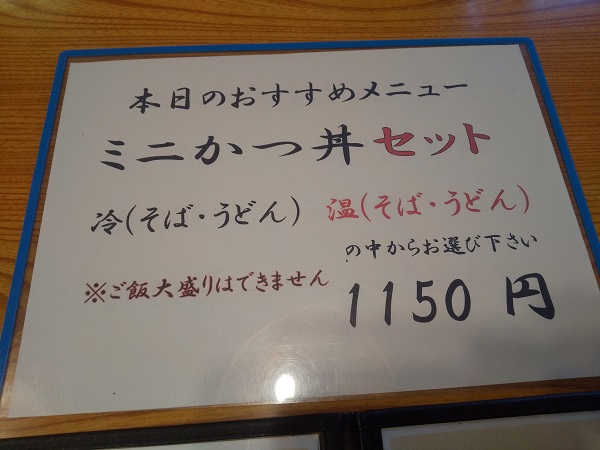 本日のおすすめメニュー
ミニかつ丼セット
冷(そば・うどん) 温(そば・うどん)
の中からお選び下さい
※ご飯大盛りはできません
1150円